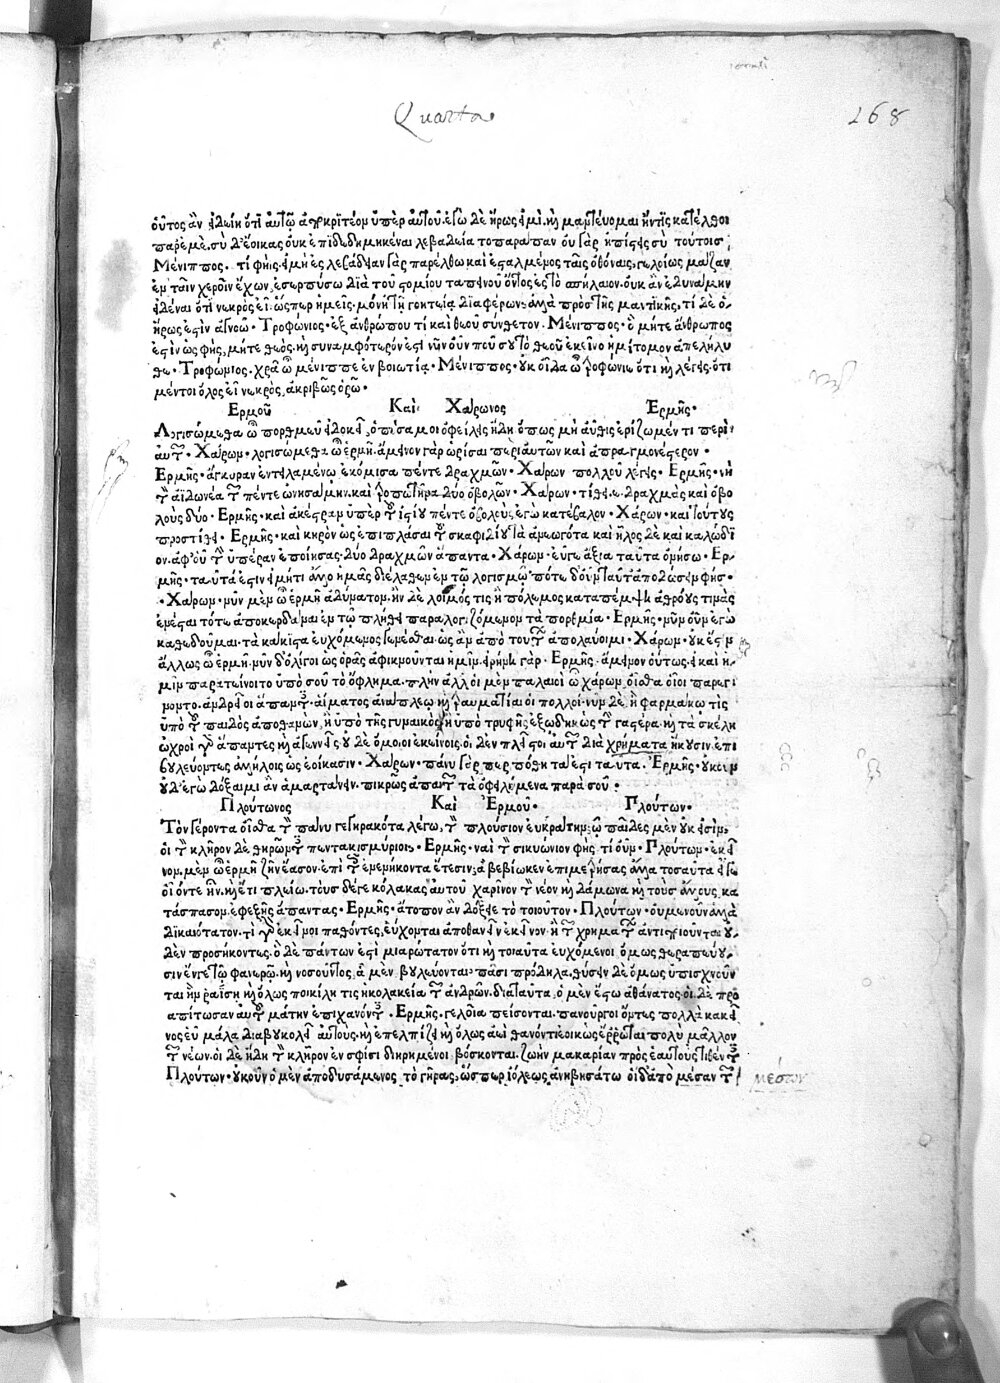 Quarta
268
οὗτος ἂν εἰδείη ὅτι αὐτῷ ἀποκριτέον ὑπὲρ αὐτοῦ. ἐγὼ δὲ ἥρως εἰμὶ. καὶ μαντεύομαι ἤν τις κατέλθοι
παρ' ἐμέ. σὺ δ' ἔοικας οὐκ ἐπιδεδημηκέναι λεβαδεία τοπαράπαν οὐ γὰρ ἠπίστεις σὺ τούτοις;
Μένιππος. τί φής. εἰ μὴ ἐς λεβάδειαν γὰρ παρέλθω καὶ ἐσταλμένος ταῖς ὀθόναις, γελοίως μᾶζαν
ἐν ταῖν χεροῖν ἔχων, ἐσερπύσω διὰ τοῦ στομίου ταπεινοῦ ὄντος ἐς τὸ σπήλαιον. οὐκ ἂν ἐδυνάμην
εἰδέναι ὅτι νεκρὸς εἶ. ὥσπερ ἡμεῖς. μόνῃ τῇ γοητεία διαφέρων; ἀλλὰ πρὸς τῆς μαντικῆς, τί δὲ ὁ
ἥρως ἐστὶν ἀγνοῶ. Τροφώνιος. ἐξ ἀνθρώπου τί καὶ θεοῦ σύνθετον. Μένιππος. ὃ μήτε ἄνθρωπος
ἐστὶν ὡς φής, μήτε θεὸς. καὶ συναμφότερόν ἐστι νῦν οὖν ποῦ σου τὸ θεοῦ ἐκεῖνο ἡμίτομον ἀπελήλυ
θε. Τροφώνιος. χρᾶ ὦ μένιππε ἐν βοιωτία. Μένιππος. οὐκ οἶδα ὦ τροφώνιε ὅτι καὶ λέγεις. ὅτι
μέντοι ὅλος εἶ νεκρὸς, ἀκριβῶς ὁρῶ.
Ἑρμοῦ Καὶ Χάρωνος Ἑρμῆς.
Λογισώμεθα ὦ πορθμεῦ εἰ δοκεῖ, ὁπόσα μοι ὀφείλεις ἤδη ὅπως μὴ αὖθις ἐρίζωμέν τι περὶ
αὐτῶν. Χάρων. λογισώμεθα ὦ ἑρμῆ. ἄμεινον γὰρ ὡρίσθαι περὶ αὐτῶν καὶ ἀπραγμονέστερον.
Ἑρμῆς. ἄγκυραν ἐντειλαμένῳ ἐκόμισα πέντε δραχμῶν. Χάρων πολλοῦ λέγεις. Ἑρμῆς. νὴ
τὸν ἀϊδωνέα τῶν πέντε ὠνησάμην. καὶ τροπωτῆρα δύο ὀβολῶν. Χάρων. τίθει. ε. δραχμὰς καὶ ὀβο
λοὺς δύο. Ἑρμῆς. καὶ ἀκέστραν ὑπὲρ τοῦ ἱστίου πέντε ὀβολοὺς ἐγὼ κατέβαλον. Χάρων. καὶ τούτους
προστίθει. Ἑρμῆς. καὶ κηρὸν ὡς ἐπιπλάσαι τοῦ σκαφιδίου τὰ ἀνεωγότα καὶ ἥλους δὲ καὶ καλώδι
ον. ἀφ' οὗ τὴν ὑπέραν ἐποίησας. δύο δραχμῶν ἅπαντα. Χάρων. εὖγε ἄξια ταῦτα ὠνήσω. Ἑρ
μῆς. ταῦτά ἐστιν εἰ μή τι ἄλλο ἡμᾶς διέλαθεν ἐν τῷ λογισμῷ. πότε δ' οὖν ταῦτ' ἀποδώσειν φής.
Χάρων. νῦν μὲν ὦ ἑρμῆ ἀδύνατον. ἢν δὲ λοιμός τις ἢ πόλεμος καταπέμψῃ ἀθρόους τινὰς
ἐνέσται τότε ἀποκερδᾶναι ἐν τῷ πλήθει παραλογιζόμενον τὰ πορθμία. Ἑρμῆς. νῦν οὖν ἐγὼ
καθεδοῦμαι. τὰ κάκιστα εὐχόμενος γενέσθαι. ὡς ἂν ἀπὸ τούτων ἀπολαύοιμι. Χάρων. οὐκ ἔστιν
ἄλλως ὦ ἑρμῆ. νῦν δ' ὀλίγοι ὡς ὁρᾶς ἀφικνοῦνται ἡμῖν. εἰρήνη γὰρ. Ἑρμῆς. ἄμεινον οὕτως. εἰ καὶ ἡ
μῖν παρατείνοιτο ὑπὸ σοῦ τὸ ὄφλημα. πλὴν ἀλλ' οἱ μὲν παλαιοὶ ὦ χάρων. οἶσθα οἷοι παρεγί
νοντο. ἀνδρεῖοι ἅπαντες. αἵματος ἀνάπλεῳ καὶ τραυματίαι οἱ πολλοί. νῦν δὲ ἢ φαρμάκῳ τις
ὑπὸ τοῦ παιδὸς ἀποθανὼν, ἢ ὑπὸ τῆς γυναικὸς, ἢ ὑπὸ τρυφῆς ἐξῳδηκὼς τὴν γαστέρα. καὶ τὰ σκέλη
ὠχροὶ γὰρ ἅπαντες καὶ ἀγεννεῖς οὐδὲ ὅμοιοι ἐκείνοις. οἱ δὲ πλεῖστοι αὐτῶν διὰ χρήματα ἥκουσιν. ἐπι
βουλεύοντες ἀλλήλοις ὡς ἐοίκασιν. Χάρων. πάνυ γὰρ περιπόθητά ἐστι ταῦτα. Ἑρμῆς. οὐκοῦν
οὐδ' ἐγὼ δόξαιμι ἂν ἁμαρτάνειν. πικρῶς ἀπαιτῶν τὰ ὀφειλόμενα παρὰ σοῦ.
Πλούτωνος Καὶ Ἑρμοῦ. Πλούτων.
Τὸν γέροντα οἶσθα τὸν πάνυ γεγηρακότα λέγω, τὸν πλούσιον εὐκράτην; ᾧ παῖδες μὲν οὐκ εἰσὶν,
οἱ τὸν κλῆρον δὲ θηρῶντες πεντακισμύριοι. Ἑρμῆς. ναὶ τὸν σικυώνιον φής. τί οὖν. Πλούτων. ἐκεῖ
νον. μὲν ὦ ἑρμῆ ζῆν ἔασον. ἐπὶ τοῖς ἐνενήκοντα ἔτεσιν; ἃ βεβίωκεν ἐπιμετρήσας ἄλλα τοσαῦτα εἴ γε
οἷόν τε ἦν. καὶ ἔτι πλείω. τοὺς δέ γε κόλακας αὐτοῦ χαρῖνον τὸν νέον καὶ δάμωνα καὶ τοὺς ἄλλους, κα
τάσπασον. ἐφεξῆς ἅπαντας. Ἑρμῆς. ἄτοπον ἂν δόξειε τὸ τοιοῦτον. Πλούτων. οὐμενοῦν ἀλλὰ
δικαιότατον. τί γὰρ ἐκεῖνοι παθόντες, εὔχονται ἀποθανεῖν ἐκεῖνον. ἢ τῶν χρημάτων ἀντιποιοῦνται οὐ
δὲν προσήκοντες. ὃ δὲ πάντων ἐστὶ μιαρώτατον ὅτι καὶ τοιαῦτα εὐχόμενοι ὅμως θεραπεύου
σιν ἔν γε τῷ φανερῷ. καὶ νοσοῦντος, ἃ μὲν βουλεύονται πᾶσι πρόδηλα. θύσειν δὲ ὅμως ὑπισχνοῦν
ται ἢν ῥαΐσῃ καὶ ὅλως ποικίλη τις ἡ κολακεία τῶν ἀνδρῶν. διὰ ταῦτα. ὁ μὲν ἔστω ἀθάνατος. οἱ δὲ προ
απίτωσαν αὐτοῦ μάτην ἐπιχανόντες. Ἑρμῆς. γελοῖα πείσονται. πανοῦργοι ὄντες πολλὰ κἀκεῖ
νος εὖ μάλα διαβουκολεῖ αὐτοὺς. καὶ ἐπελπίζει καὶ ὅλως ἀεὶ θανόντι ἐοικὼς ἔρρωται πολὺ μᾶλλον
τῶν νέων. οἱ δὲ ἤδη τὸν κλῆρον ἐν σφίσι διῃρημένοι βόσκονται. ζωὴν μακαρίαν πρὸς ἑαυτοὺς τιθέντες
Πλούτων. οὐκοῦν ὁ μὲν ἀποδυσάμενος τὸ γῆρας, ὥσπερ ἰόλεως ἀνηβησάτω οἱ δ' ἀπὸ μέσων τῶν
μέσων